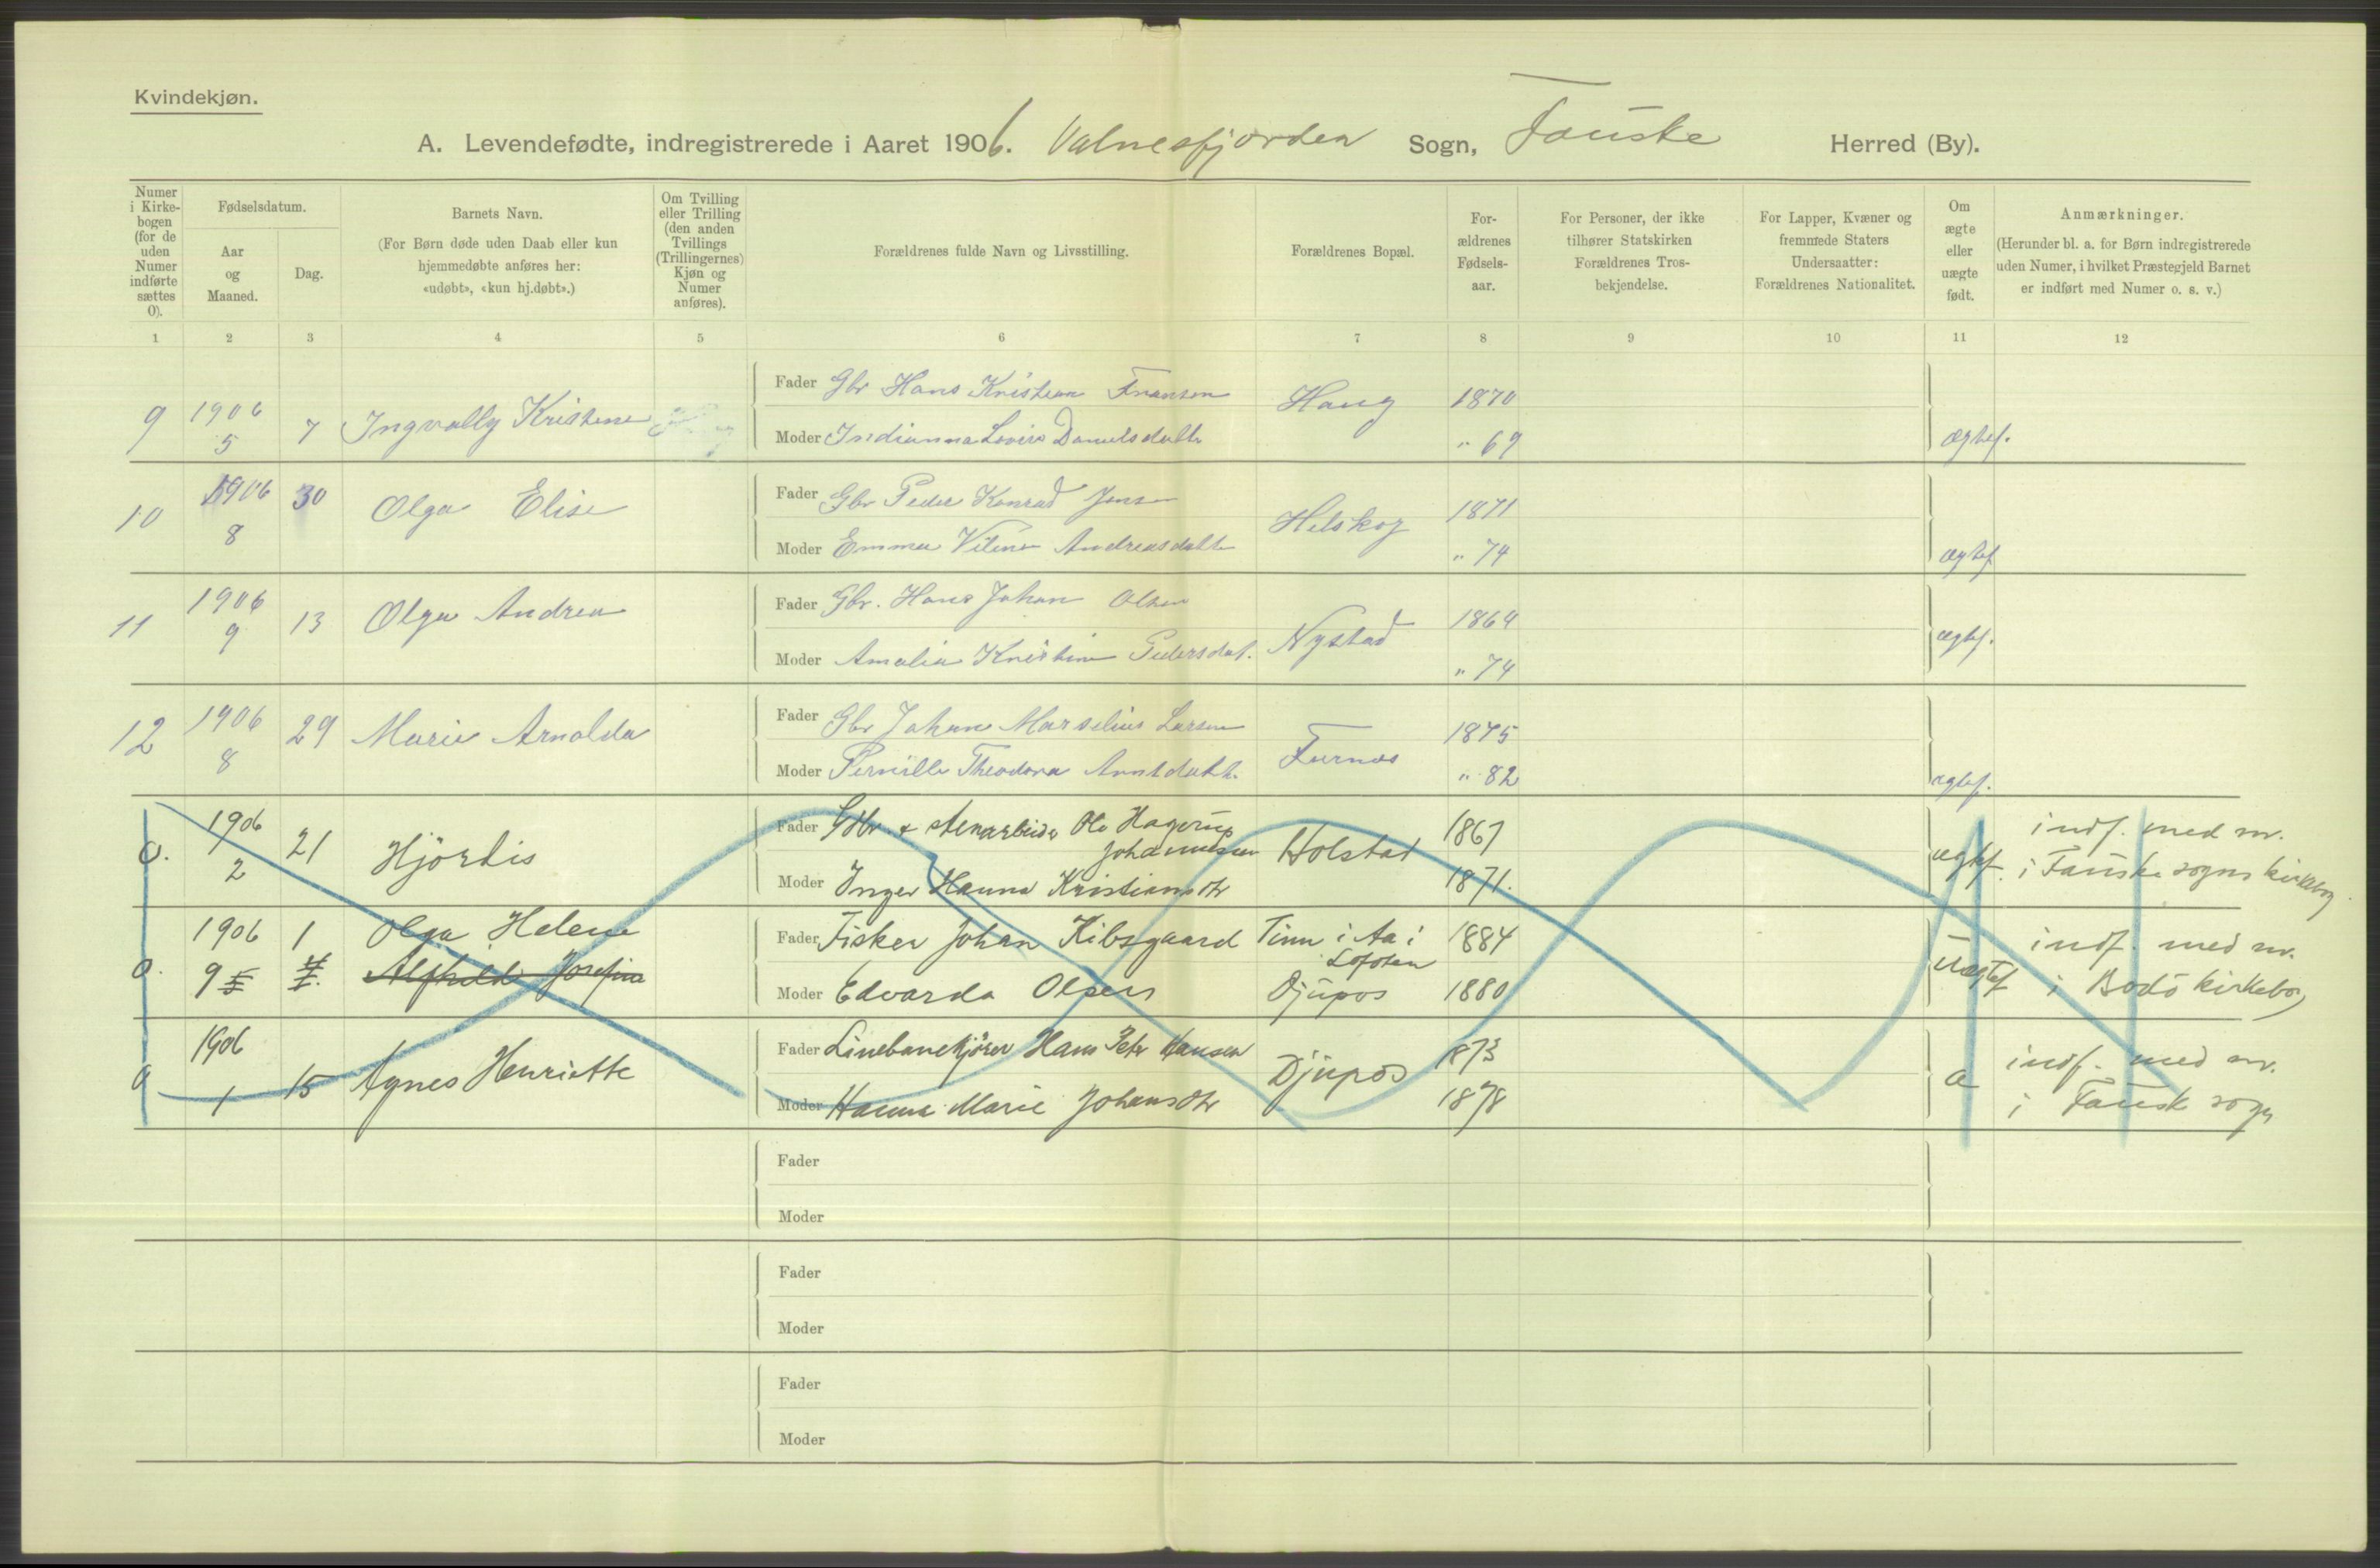 Kvindekjøn.
A. Levendefødte, indregistrerede i Aaret 1906. Valnesfjorden Sogn, Fauske Herred (By).
Numer i Kirke-bogen (for de uden Numer indførte sættes 0).
Fødselsdatum.
Aar og Maaned.
Dag.
Barnets Navn.
(For Børn døde uden Daab eller kun hjemmedøbte anføres her: «udøbt», «kun hj.døbt».)
Om Tvilling eller Trilling (den anden Tvillings (Trillingernes) Kjøn og Numer anføres).
Forældrenes fulde Navn og Livsstilling.
Forældrenes Bopæl.
For-ældrenes Fødsels-aar.
For Personer, der ikke tilhører Statskirken Forældrenes Tros-bekjendelse.
For Lapper, Kvæner og fremmede Staters Undersaatter: Forældrenes Nationalitet.
Om ægte eller uægte født.
Anmærkninger.
(Herunder bl. a. for Børn indregistrerede uden Numer, i hvilket Præstegjeld Barnet er indført med Numer o. s. v.)
1 2 3 4 5 6 7 8 9 10 11 12
9 1906 5 7 Ingvally Kristene
Fader Gbr Hans Kristian Fransen Haug 1870
Moder Indianna Lovise Danielsdatter " 69 ægtef.
10 1906 8 30 Olga Elise
Fader Gbr Peder Konrad Jensen Helskog 1871
Moder Emma Vilene Andreasdatter " 74 ægtef
11 1906 9 13 Olga Andrea
Fader Gbr. Hans Johan Olsen Nystad 1864
Moder Amalia Kristine Pedersdat. " 74 ægtef.
12 1906 8 29 Marie Arnolda
Fader Gbr Johan Marselius Larsen Furnes 1875
Moder Pernille Theodora Arntdatt. " 82 ægtef.
0. 1906 2 21 Hjördis
Fader Gbr. & stenarbeider Ole Hagerup Johannesen Holstad 1867
Moder Inger Hanna Kristiansdtr 1871. ægtef. indf. med nr. i Fauske sogns kirkebog.
0. 1906 9 1 Olga Helene
Alfhild Josefine
Fader Fisker Johan Kibsgaard Tinn i Aa i Lofoten 1884
Moder Edvarda Olsen Djupos 1880 Uægtef indf. med nr. i Bodö kirkebog
0 1906 1 15 Agnes Henriette
Fader Linebanekjörer Hans Peter Hansen Djupos 1873
Moder Hanna Marie Johansdtr 1878 æ indf. med nr. i Fausk sogn
Fader
Moder
Fader
Moder
Fader
Moder